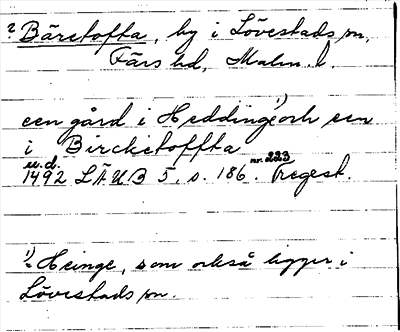 ? Bäretofta, by i Lövestads sn,
Färs hd, Malm. l.
een gård i Heddinge¹⁾ och een
i Bircketoffta
u.d.
1492 LÄUB 5, s. 186. nr. 223 Regest.
¹⁾ Heinge, som också ligger i
Lövestads sn.